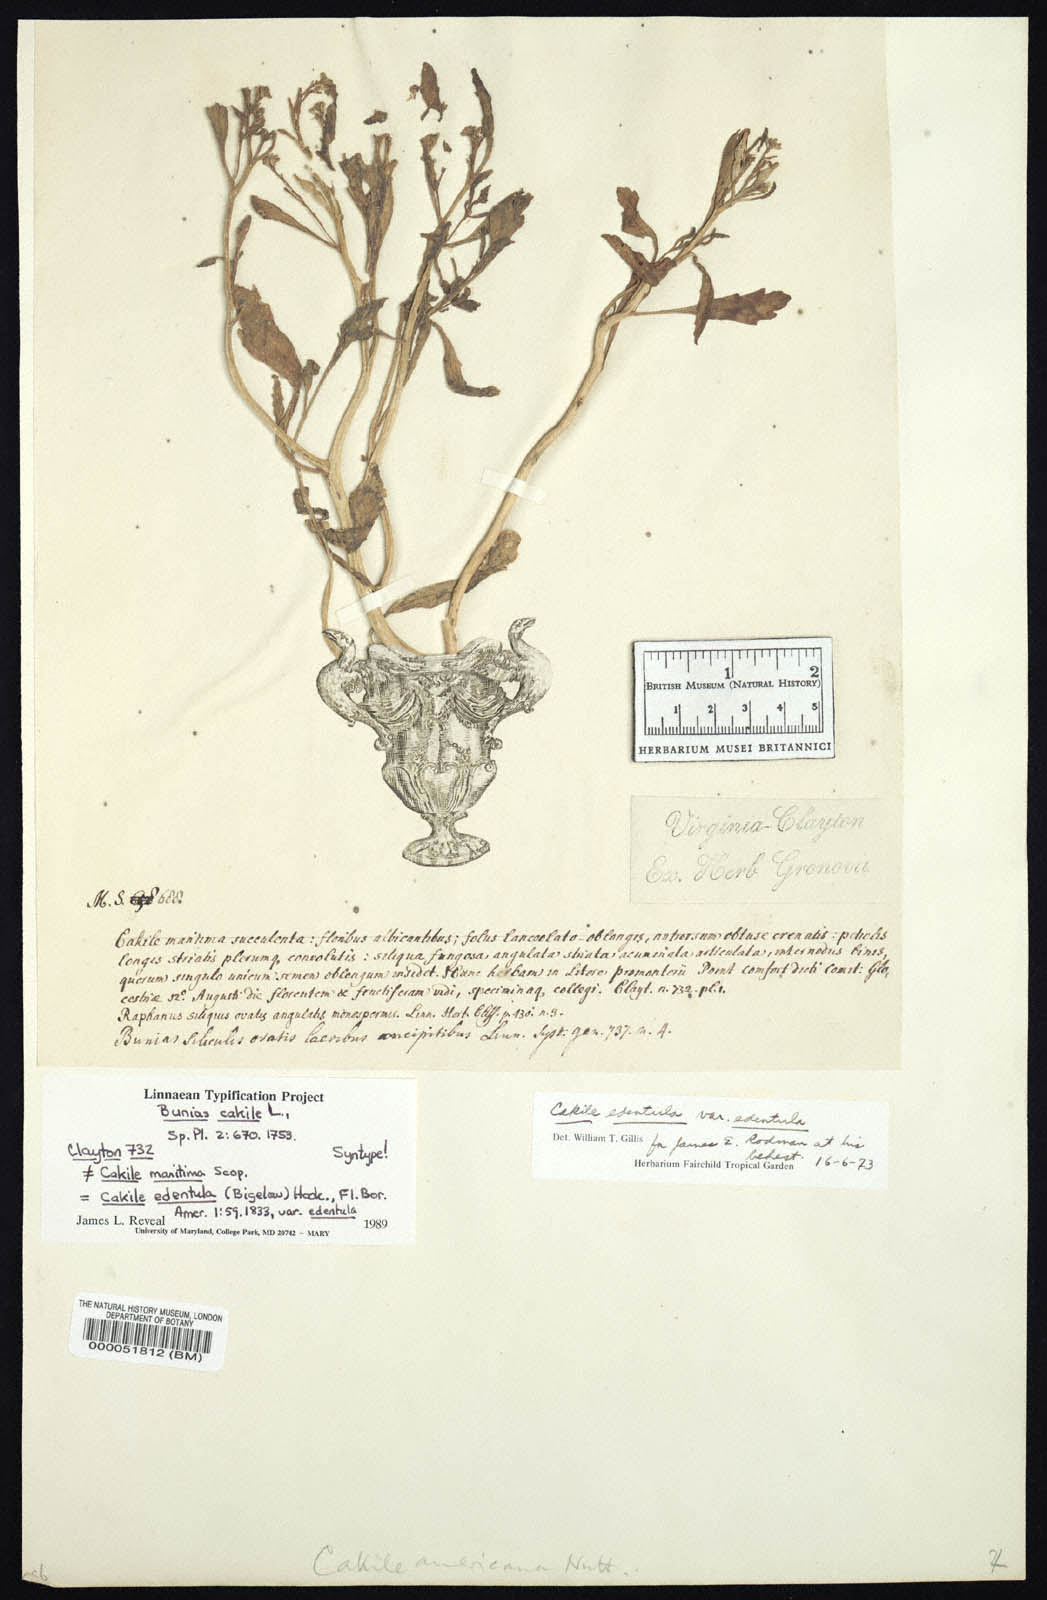 1 2
BRITISH MUSEUM (NATURAL HISTORY)
1 2 3 4 5
HERBARIUM MUSEI BRITANNICI
Virginia-Clayton
Ex. Herb Gronova
M. S. 688.
Cakile maritima succulenta: floribus albicantibus; foliis lanceolato-oblongis, antrorsum obtuse crenatis: petiolis
longis striatis plerumq convolutis: siliqua fungosa angulata striata acuminata articulata, internodiis binis,
quorum singulo unicum semen oblongum insidet. Hanc herbam in Litore promontorii Point comfort dicti Comit: Glo,
cestriæ 52o Augusti die florentem & fructiferam vidi, speciminaq collegi. Clayt. n. 732. pl. 1.
Raphanus siliquis ovatis angulatis monospermis. Linn. Hort. Cliff. p. 430. n. 3.
Bunias siliculis ovatis laevibus ancipitibus Linn. Syst. gen. 737. n. 4.
Linnaean Typification Project
Bunias cakile L.,
Sp. Pl. 2: 670. 1753.
Clayton 732 Syntype!
≠ Cakile maritima Scop.
= Cakile edentula (Bigelow) Hook., Fl. Bor.
Amer. 1: 59. 1833, var. edentula
James L. Reveal 1989
University of Maryland, College Park, MD 20742 – MARY
Cakile edentula var. edentula
Det. William T. Gillis for James E. Rodman at his
behest.
Herbarium Fairchild Tropical Garden 16-6-73
THE NATURAL HISTORY MUSEUM, LONDON
DEPARTMENT OF BOTANY
000051812 (BM)
Cakile americana Nutt.